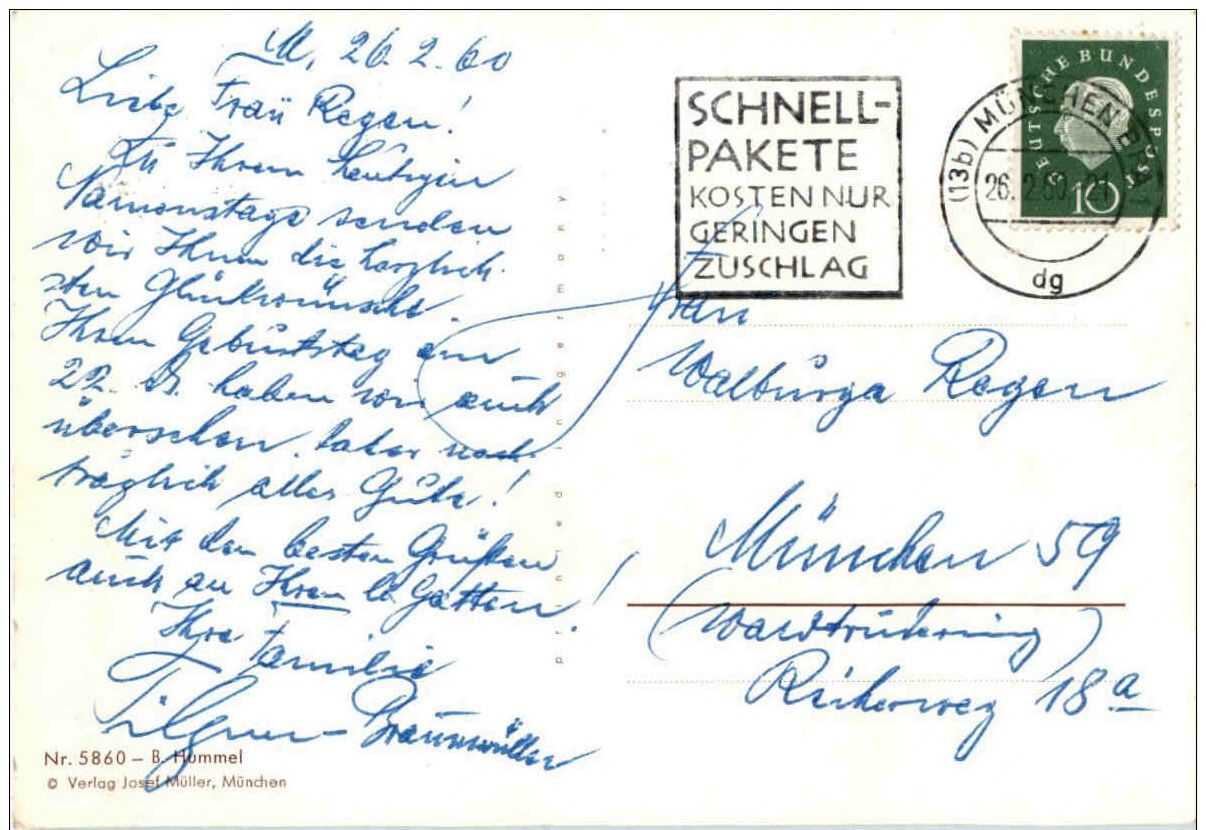 M, 26.2.60
Liebe Frau Regen!
Zu Ihrem heutigen
Namenstage senden
wir Ihnen die herzlich-
sten Glückwünsche.
Ihren Geburtstag am
22. ds. haben wir auch
übersehen, daher nach-
träglich alles Gute!
Mit den besten Grüßen
auch an Ihren lb. Gatten!
Ihre Familie
Tilgner-Braunmüller
Nr. 5860 – B. Hummel
© Verlag Josef Müller, München
printed in germany
SCHNELL-
PAKETE
KOSTEN NUR
GERINGEN
ZUSCHLAG
(13b) MÜNCHEN
26.2.60
dg
DEUTSCHE BUNDESPOST
10
Frau
Walburga Regen
München 59
(Waldtrudering)
Reiherweg 18a